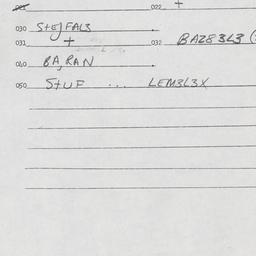 022 +
030 STEJFAL3
031 + 032 BAZ83L3 (
040 BA,RAN
050 STUF ... LEM3L3X